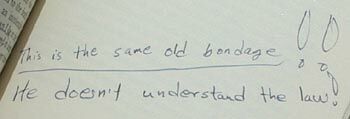 This is the same old bondage!!
He doesn't understand the law!